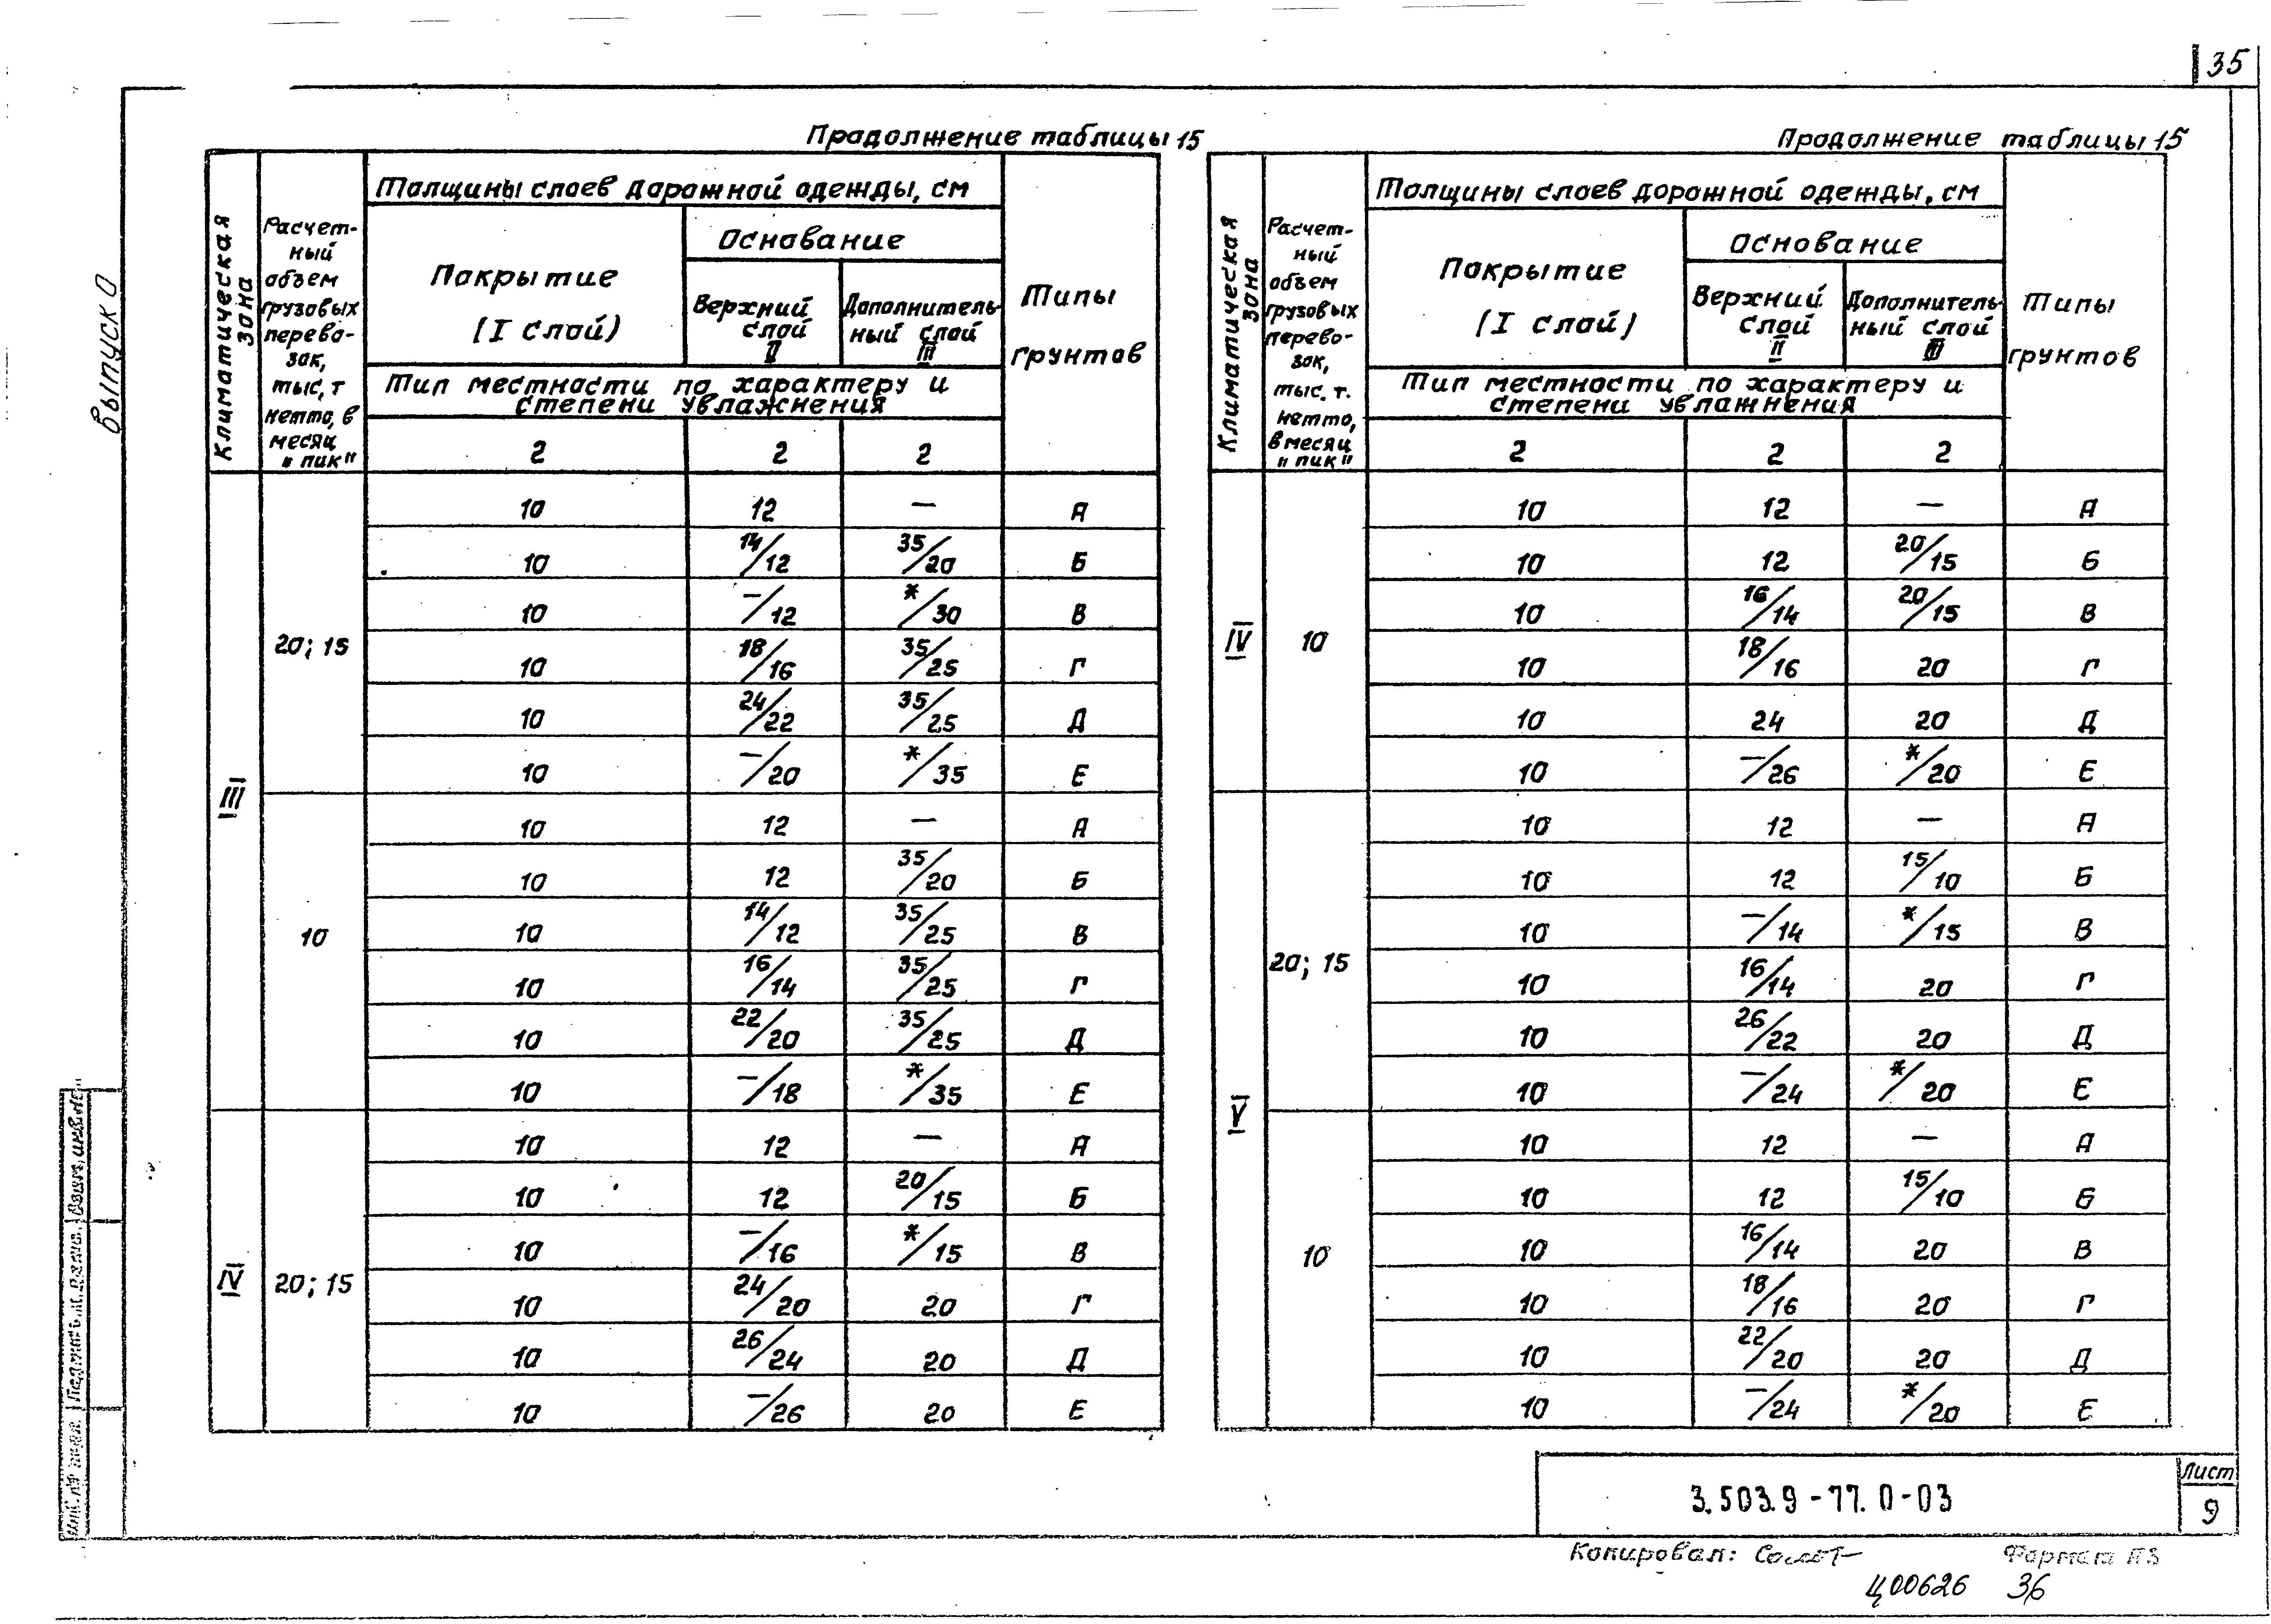 35
Выпуск 0
Продолжение таблицы 15
Климатическая зона
Расчет-
ный
объем
грузовых
перево-
зок,
тыс. т
нетто, в
месяц
„пик"
Толщины слоев дорожной одежды, см
Покрытие
(I слой)
Основание
Верхний
слой
II
Дополнитель-
ный слой
III
Типы
грунтов
Тип местности по характеру и
степени увлажнения
2 2 2
III
20; 15
10 12 — А
10 14/12 35/20 Б
10 —/12 */30 В
10 18/16 35/25 Г
10 24/22 35/25 Д
10 —/20 */35 Е
10
10 12 — А
10 12 35/20 Б
10 14/12 35/25 В
10 16/14 35/25 Г
10 22/20 35/25 Д
10 —/18 */35 Е
IV
20; 15
10 12 — А
10 12 20/15 Б
10 —/16 */15 В
10 24/20 20 Г
10 26/24 20 Д
10 —/26 20 Е
Продолжение таблицы 15
Климатическая зона
Расчет-
ный
объем
грузовых
перево-
зок,
тыс. т.
нетто,
в месяц
„пик"
Толщины слоев дорожной одежды, см
Покрытие
(I слой)
Основание
Верхний
слой
II
Дополнитель-
ный слой
III
Типы
грунтов
Тип местности по характеру и
степени увлажнения
2 2 2
IV
10
10 12 — А
10 12 20/15 Б
10 16/14 20/15 В
10 18/16 20 Г
10 24 20 Д
10 —/26 */20 Е
V
20; 15
10 12 — А
10 12 15/10 Б
10 —/14 */15 В
10 16/14 20 Г
10 26/22 20 Д
10 —/24 */20 Е
10
10 12 — А
10 12 15/10 Б
10 16/14 20 В
10 18/16 20 Г
10 22/20 20 Д
10 —/24 */20 Е
3.503.9-77.0-03
Лист
9
Копировал:
Формат
Ц00626 36